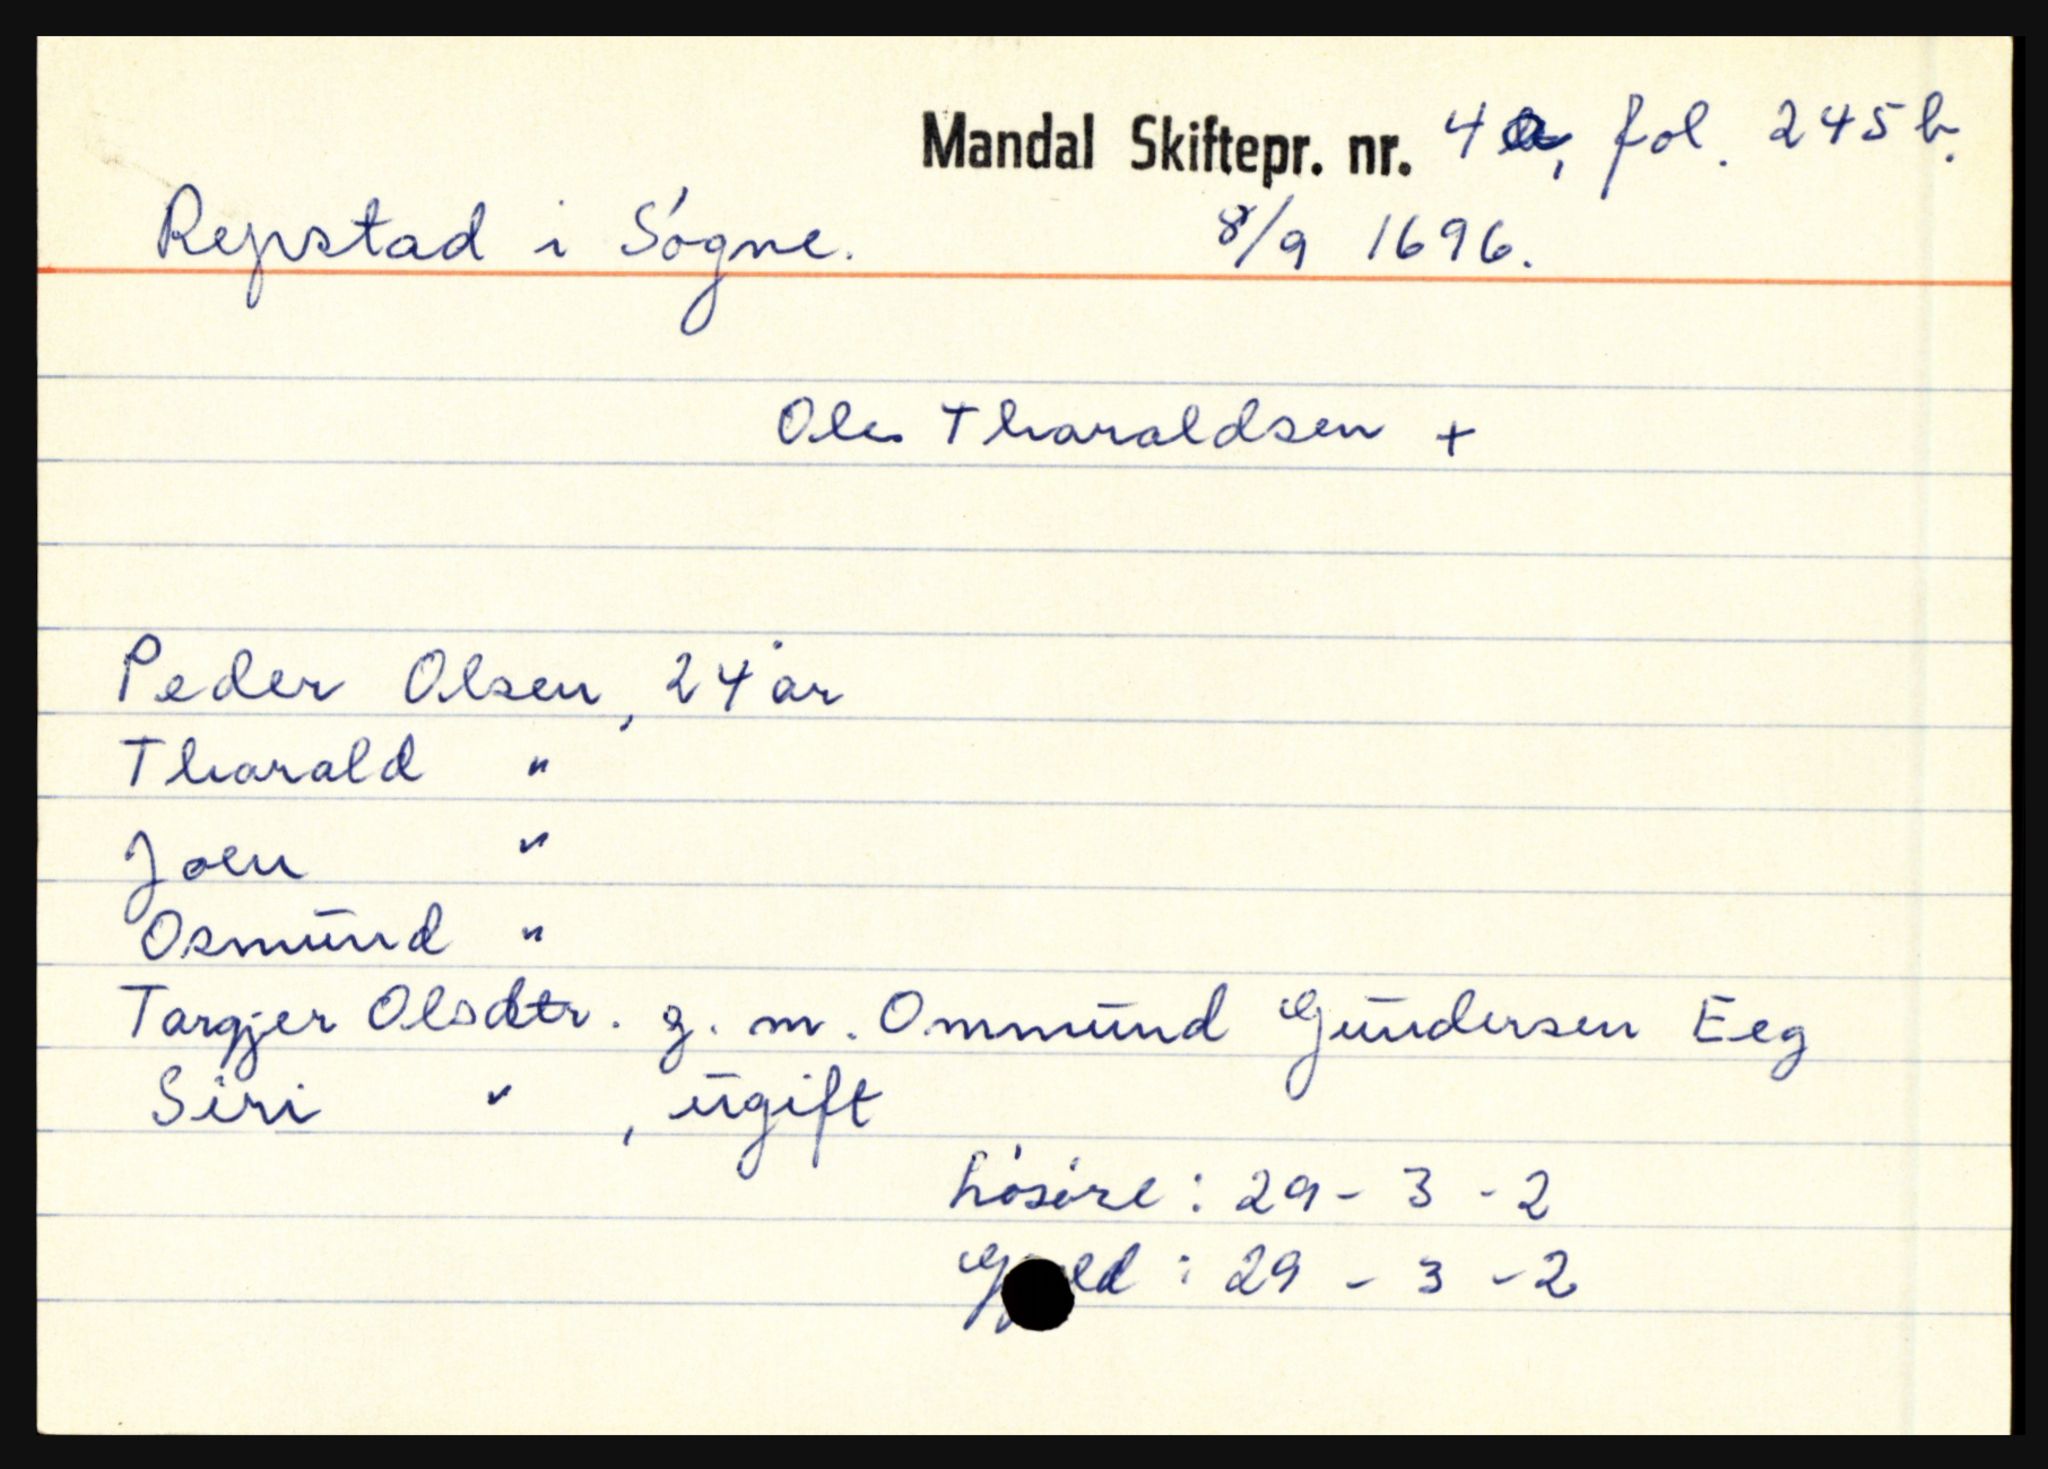 Mandal Skiftepr. nr. 4a, fol. 245 b.
Repstad i Søgne. 8/9 1696.
Ole Tharaldsen +
Peder Olsen, 24 år
Tharald "
Joen "
Osmund "
Targjer Olsdtr. g. m. Ommund Gundersen Eeg
Siri " , ugift
Løsøre : 29 - 3 - 2
Gjeld : 29 - 3 - 2